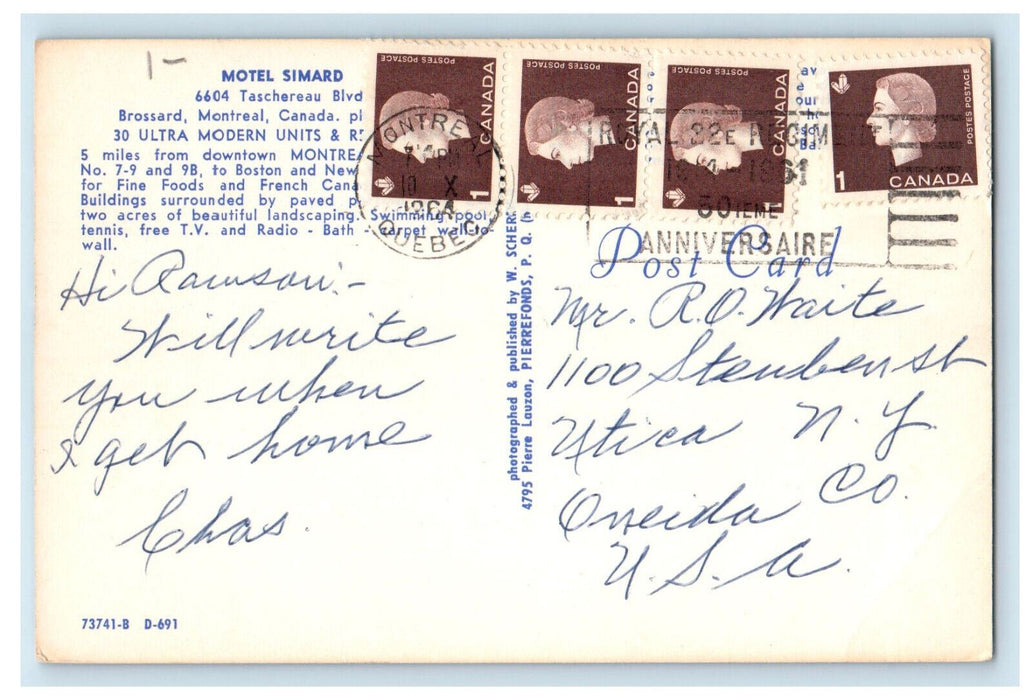 1-
MOTEL SIMARD
6604 Taschereau Blvd
Brossard, Montreal, Canada.
30 ULTRA MODERN UNITS &
5 miles from downtown MONTRE
No. 7-9 and 9B, to Boston and New
for Fine Foods and French Cana
Buildings surrounded by paved p
two acres of beautiful landscaping. Swimming pool
tennis, free T.V. and Radio - Bath - carpet wall-to-
wall.
Hi Rawson:-
Will write
you when
I get home
Chas.
73741-B D-691
POSTES POSTAGE
CANADA
1
POSTES POSTAGE
CANADA
1
POSTES POSTAGE
CANADA
1
POSTES POSTAGE
1
CANADA
MONTRÉAL
10 X
1964
QUEBEC
ROYAL 22E REGIMENT
50IEME
ANNIVERSAIRE
photographed & published by W. SCHER
4795 Pierre Lauzon, PIERREFONDS, P. Q.
Post Card
Mr. R.O. Waite
1100 Steuben st
Utica N.Y.
Oneida Co.
U.S.A.